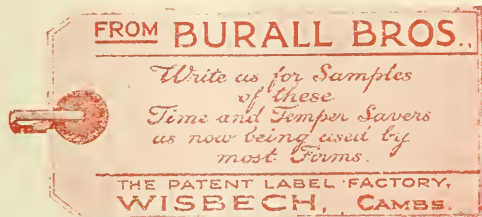 FROM BURALL BROS.,
Write us for Samples
of these
Time and Temper Savers
as now being used by
most Firms.
THE PATENT LABEL FACTORY,
WISBECH, CAMBS.